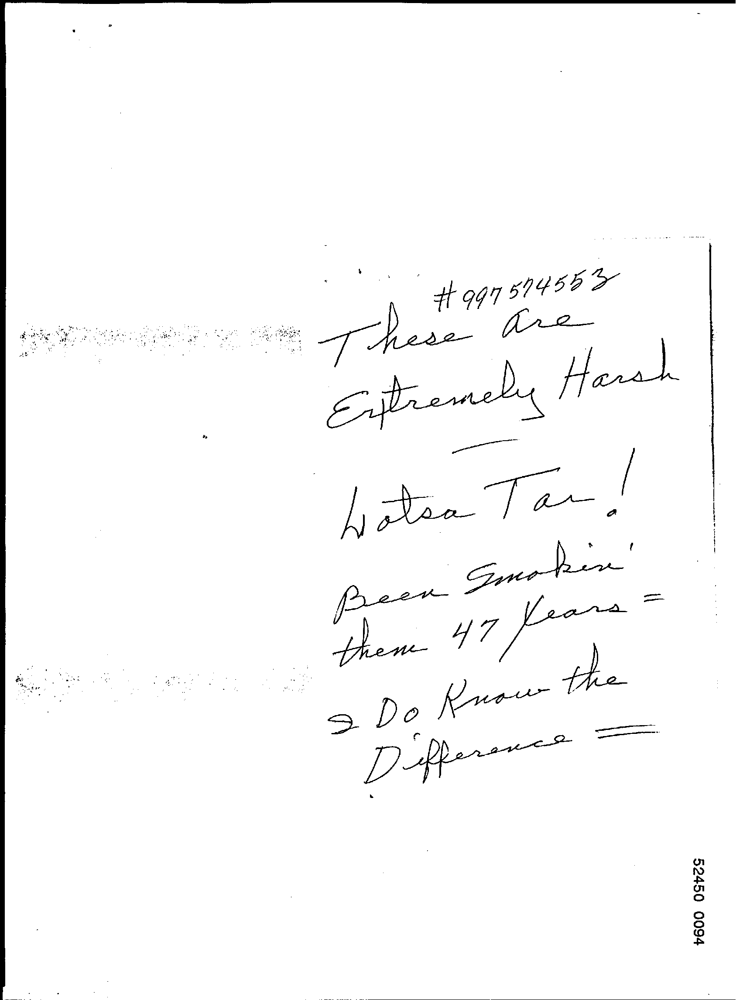 #997574553
These are
Extremely Harsh
—
Lotsa Tar!
Been Smokin'
them 47 Years =
I Do Know the
Difference =
52450 0094